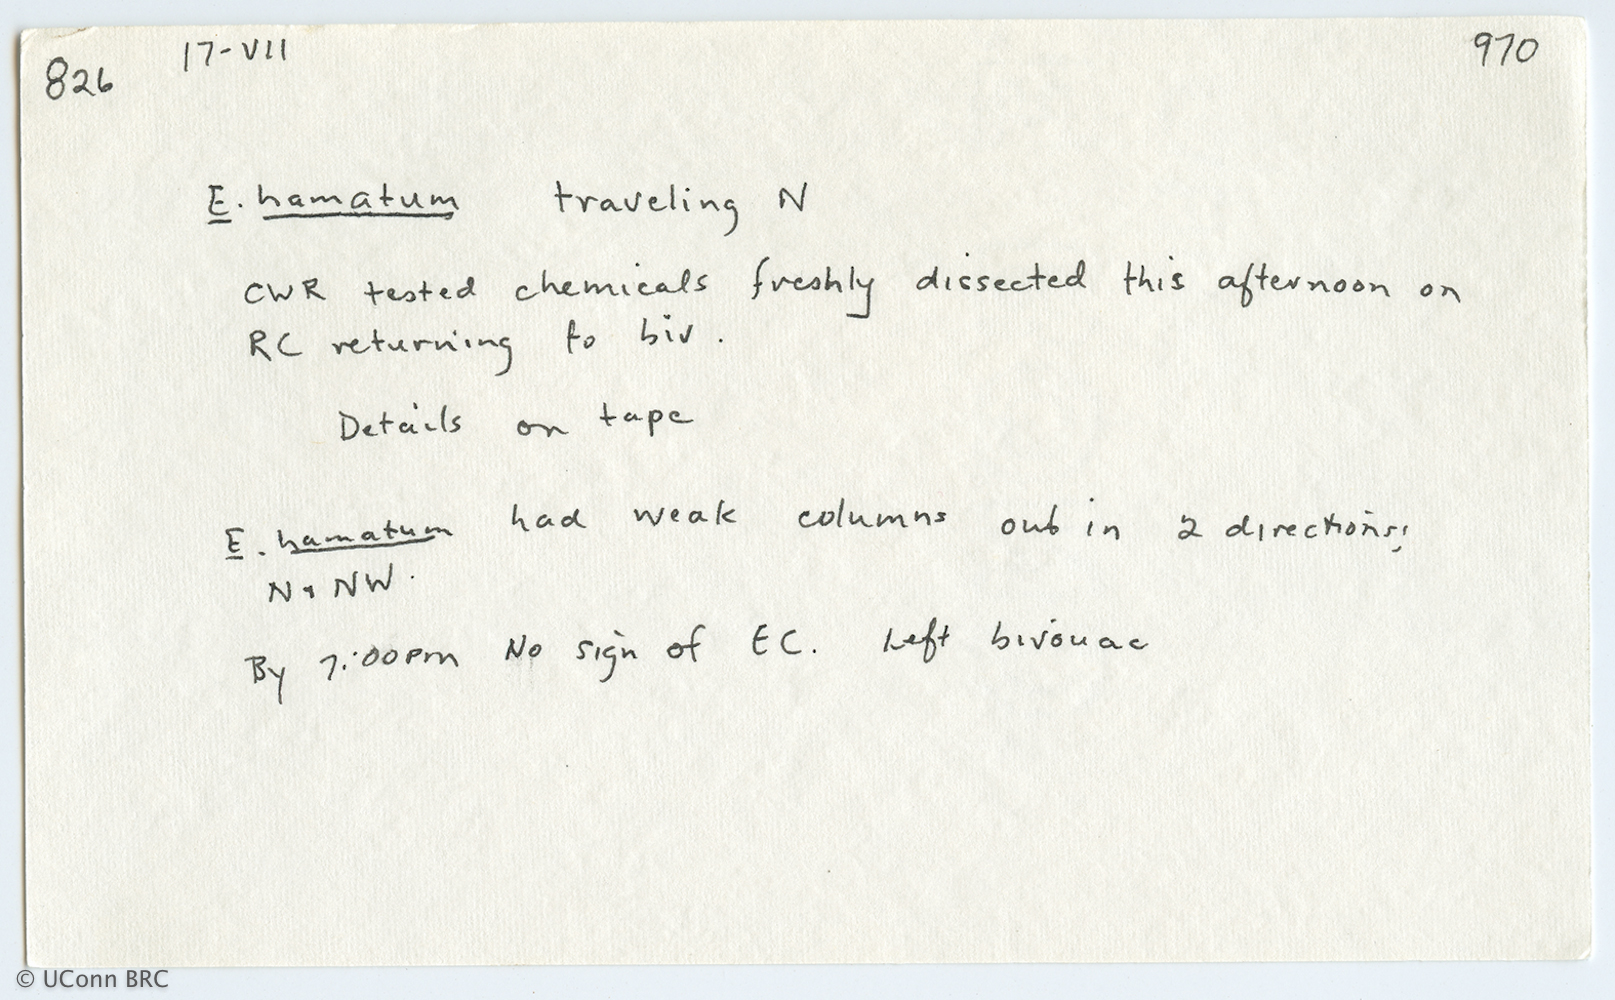 826 17-VII 970
E. hamatum traveling N
CWR tested chemicals freshly dissected this afternoon on
RC returning to biv.
Details on tape
E. hamatum had weak columns out in 2 directions;
N & NW.
By 7:00pm No sign of EC. Left bivouac
© UConn BRC